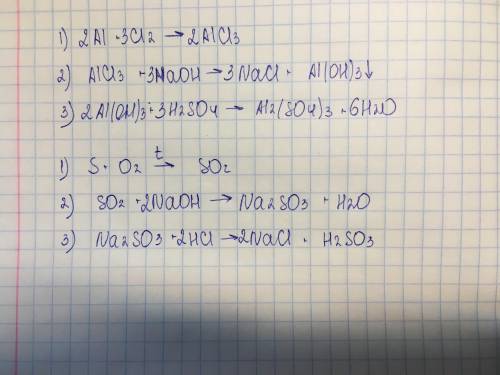 1) 2Al + 3Cl2 → 2AlCl3
2) AlCl3 + 3NaOH → 3NaCl + Al(OH)3↓
3) 2Al(OH)3 + 3H2SO4 → Al2(SO4)3 + 6H2O
1) S + O2 t→ SO2
2) SO2 + 2NaOH → Na2SO3 + H2O
3) Na2SO3 + 2HCl → 2NaCl + H2SO3